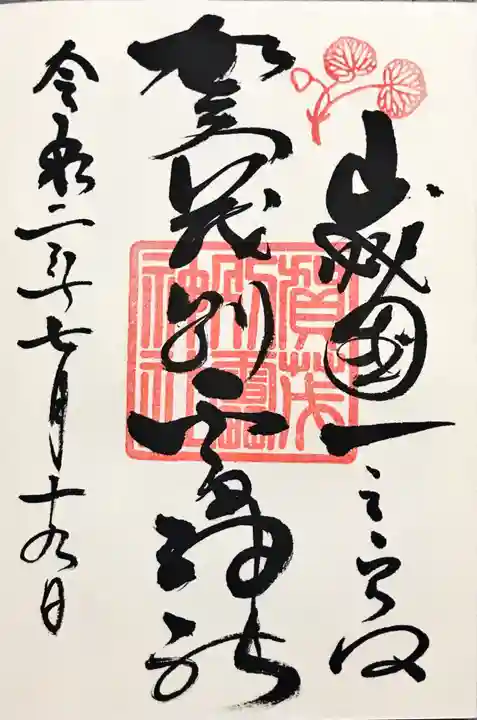 山城國一之宮
賀茂別雷神社
賀茂
別雷
神社
令和二年七月十九日